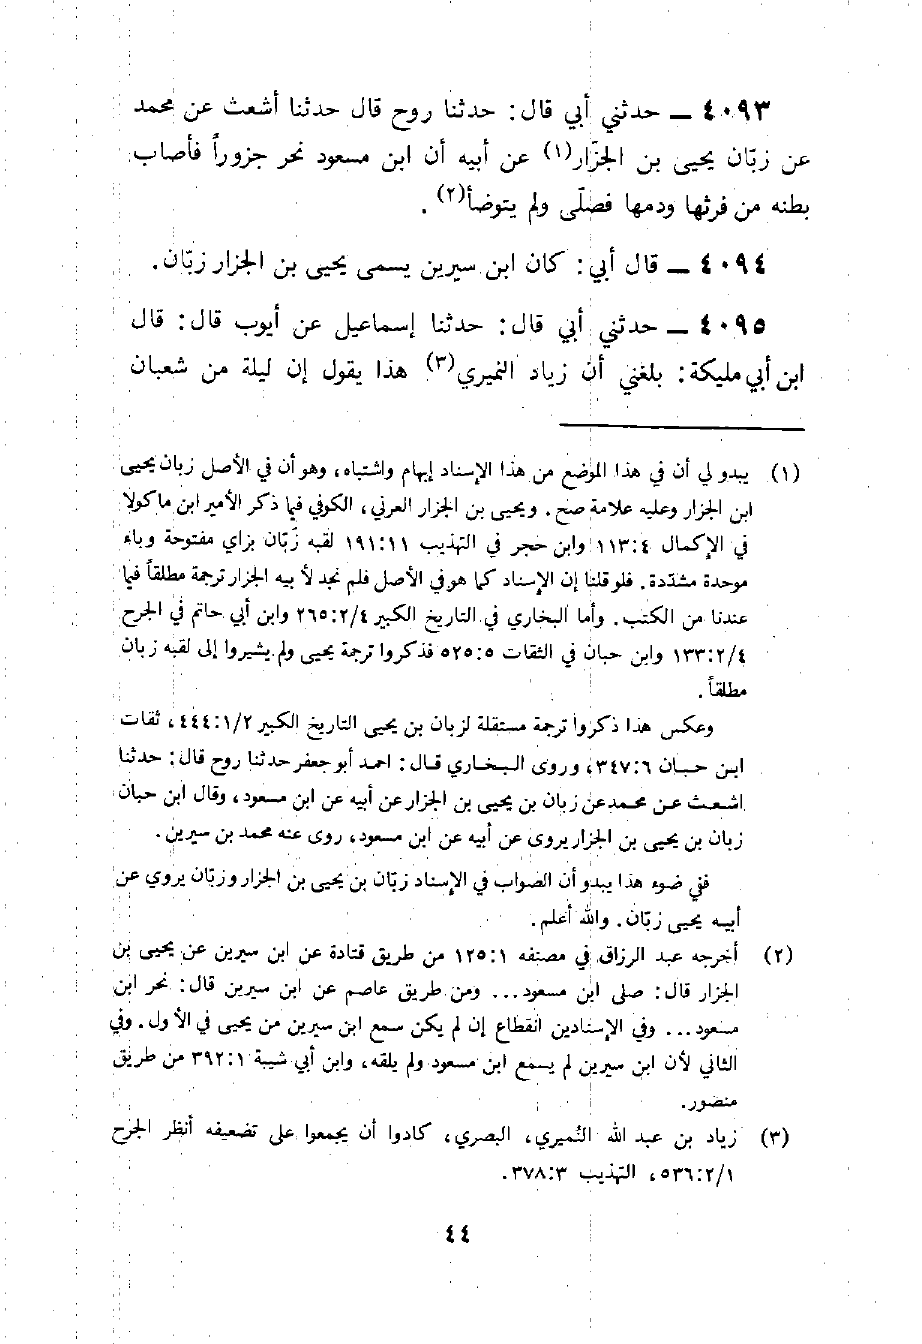 ٤٠٩٣ ــ حدثني أبي قال: حدثنا روح قال حدثنا أشعث عن محمد
عن زبّان يحيى بن الجزّار(١) عن أبيه أن ابن مسعود نحر جزوراً فأصاب
بطنه من فرثها ودمها فصلّى ولم يتوضأ(٢).
٤٠٩٤ ــ قال أبي: كان ابن سيرين يسمى يحيى بن الجزار زبّان.
٤٠٩٥ ــ حدثني أبي قال: حدثنا إسماعيل عن أيوب قال: قال
ابن أبي مليكة: بلغني أن زياد النميري(٣) هذا يقول إن ليلة من شعبان
(١) يبدو لي أن في هذا الموضع من هذا الإسناد إيهام واشتباه، وهو أن في الأصل زبان يحيى
ابن الجزار وعليه علامة صح. ويحيى بن الجزار العرني، الكوفي فيما ذكر الأمير ابن ماكولا
في الإكمال ١١٣:٤ وابن حجر في التهذيب ١٩١:١١ لقبه زَبّان بزاي مفتوحة وباء
موحدة مشدّدة. فلو قلنا إن الإسناد كما هو في الأصل فلم نجد لأبيه الجزار ترجمة مطلقاً فيما
عندنا من الكتب. وأما البخاري في التاريخ الكبير ٢٦٥:٢/٤ وابن أبي حاتم في الجرح
١٣٣:٢/٤ وابن حبان في الثقات ٥٢٥:٥ فذكروا ترجمة يحيى ولم يشيروا إلى لقبه زبان
مطلقاً.
وعكس هذا ذكروا ترجمة مستقلة لزبان بن يحيى التاريخ الكبير ٤٤٤:١/٢، ثقات
ابن حبان ٣٤٧:٦، وروى البخاري قال: احمد أبو جعفر حدثنا روح قال: حدثنا
اشعث عن محمد عن زبان بن يحيى بن الجزار عن أبيه عن ابن مسعود، وقال ابن حبان
زبان بن يحيى بن الجزار يروى عن أبيه عن ابن مسعود، روى عنه محمد بن سيرين.
ففي ضوء هذا يبدو أن الصواب في الإسناد زبّان بن يحيى بن الجزار وزبّان يروي عن
أبيه يحيى زبّان. والله أعلم.
(٢) أخرجه عبد الرزاق في مصنفه ١٢٥:١ من طريق قتادة عن ابن سيرين عن يحيى بن
الجزار قال: صلى ابن مسعود... ومن طريق عاصم عن ابن سيرين قال: نحر ابن
مسعود... وفي الإسنادين انقطاع إن لم يكن سمع ابن سيرين من يحيى في الأول. وفي
الثاني لأن ابن سيرين لم يسمع ابن مسعود ولم يلقه، وابن أبي شيبة ٣٩٢:١ من طريق
منصور.
(٣) زياد بن عبد الله النُميري، البصري، كادوا أن يجمعوا على تضعيفه أنظر الجرح
٥٣٦:٢/١، التهذيب ٣٧٨:٣.
٤٤